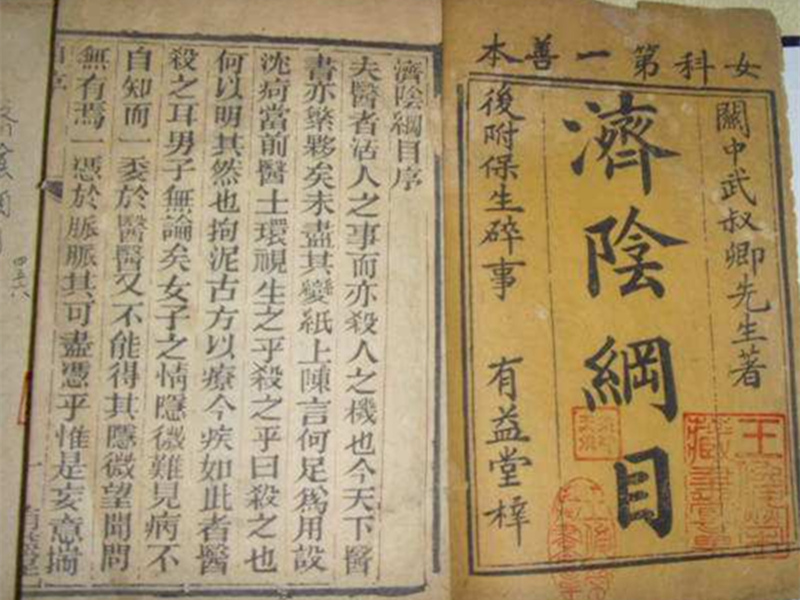 女科第一善本
關中武叔卿先生著
濟陰綱目
後附保生碎事 有益堂梓
濟陰綱目序
夫醫者活人之事而亦殺人之機也今天下醫
書亦夥矣未盡其變紙上陳言何足爲用設
沈痾當前醫士環視生之乎殺之乎曰殺之也
何以明其然也拘泥古方以療今疾如此者醫
殺之耳男子無論矣女子之情隱微難見病不
自知而一委於醫醫又不能得其隱微望聞問
無有焉一憑於脈脈其可盡憑乎惟是妄意揣
自序
四五六